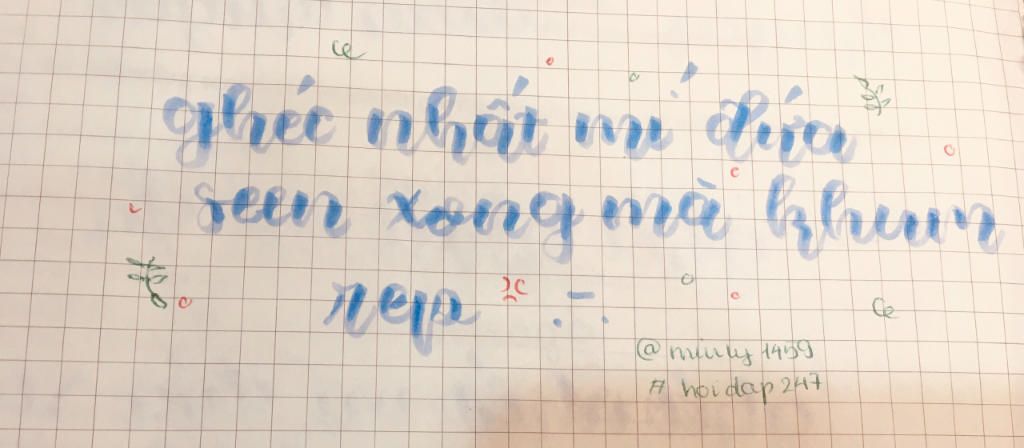 ghéc nhất mí đứa
seen xong mà khum
rep .-.
@minly1459
#hoidap247